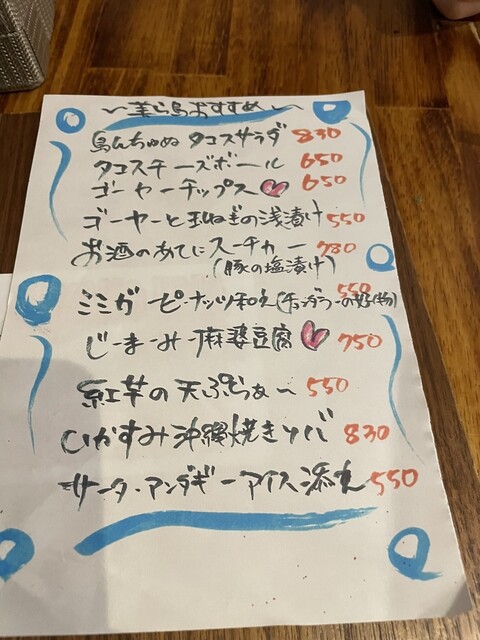 ～美ら島おすすめ～
島んちゅぬ タコスサラダ 830
タコスチーズボール 650
ゴーヤーチップス 650
ゴーヤーと玉ねぎの浅漬け 550
お酒のあてに スーチカー 780
(豚の塩漬け)
ミミガーピーナッツ和え 550
じーまーみー麻婆豆腐 750
紅芋の天ぷらぁ～ 550
いかすみ沖縄焼きソバ 830
サータ・アンダギーアイス添え 550